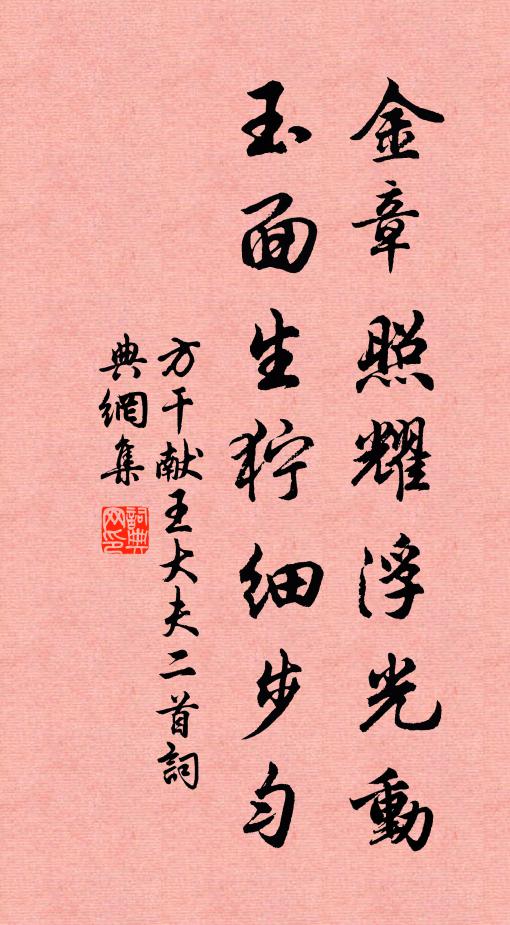 金章照耀浮光動
玉面生狞細步勻
方干献王大夫二首詞
典網集
詞典网印